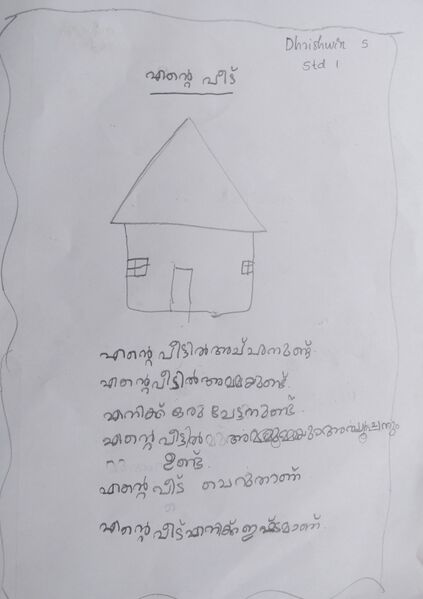 Dhrishwin S
Std 1
എന്റെ വീട്
എന്റെ വീട്ടിൽ അച്ചനുണ്ട്.
എന്റെ വീട്ടിൽ അമ്മയുണ്ട്.
എനിക്ക് ഒരു ചേട്ടനുണ്ട്.
എന്റെ വീട്ടിൽ
ഉണ്ട്.
എന്റെ വീട് ചെറുതാണ്
എന്റെ വീട് എനിക്ക് ഇഷ്ടമാണ്.